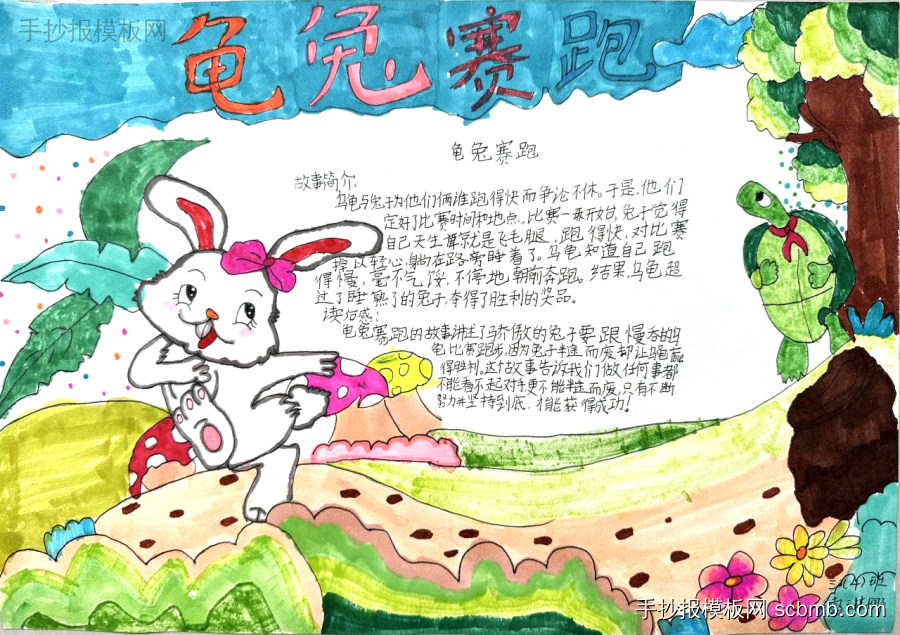 手抄报模板网
龟兔赛跑
龟兔赛跑
故事简介
乌龟与兔子为他们俩谁跑得快而争论不休。于是,他们
定好了比赛时间和地点。比赛一开始,兔子觉得
自己天生就是飞毛腿,跑得快,对比赛
掉以轻心,躺在路旁睡着了。乌龟知道自己跑
得慢,毫不气馁,不停地朝前奔跑。结果,乌龟超
过了睡熟了的兔子,夺得了胜利的奖品。
读后感:
龟兔赛跑的故事讲述了骄傲的兔子要跟慢吞吞的乌
龟比赛跑步,因为兔子半途而废却让乌龟赢
得胜利。这个故事告诉我们做任何事都
不能看不起对手更不能半途而废,只有不断
努力并坚持到底,才能获得成功!
三(4)班
手抄报模板网 scbmb.com